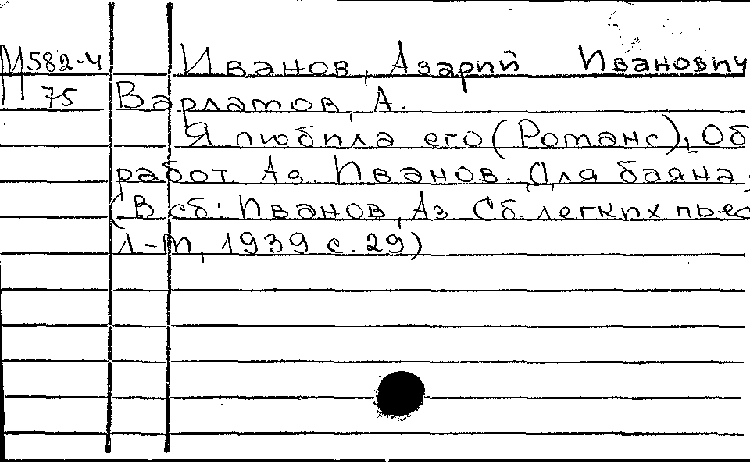 М582-4 Иванов, Азарий Иванович
75 Варламов, А.
Я любила его (Романс), Об
работ. Аз. Иванов. Для баяна,
(В сб: Иванов, Аз. Сб. легких пьес
Л-М, 1939 с. 29)